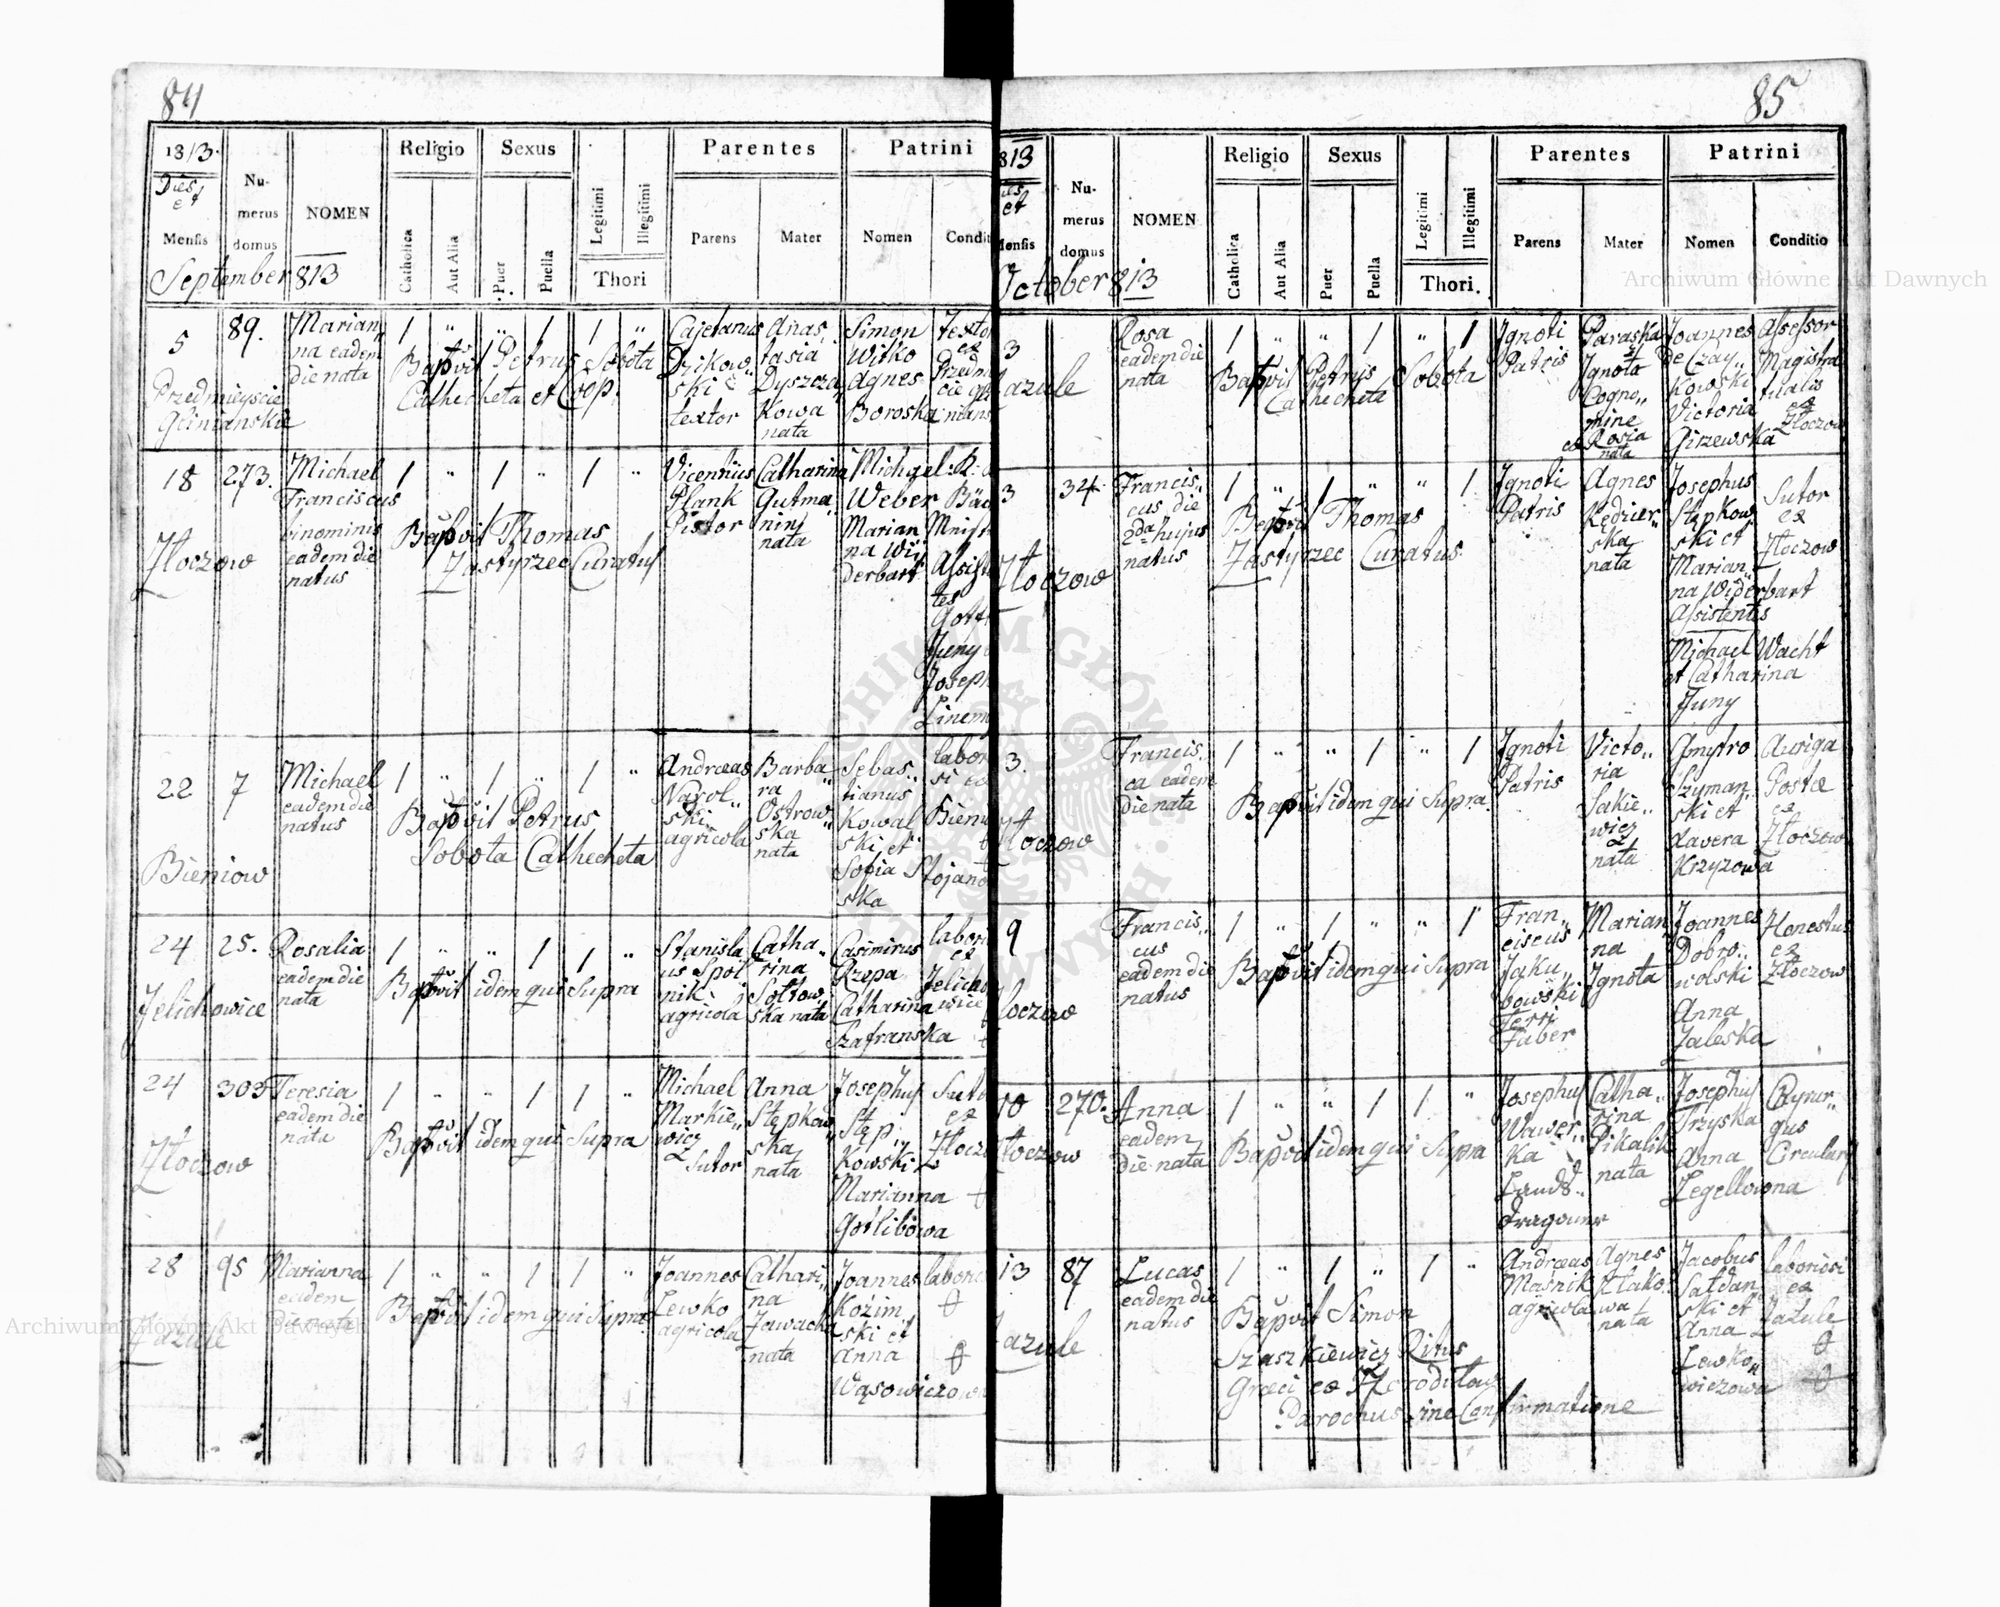 84
1813.
Dies et Mensis
Numerus domus
NOMEN
Religio
Catholica
Aut Alia
Sexus
Puer
Puella
Legitimi
Illegitimi
Thori
Parentes
Parens
Mater
Patrini
Nomen
Condit
September 813
5
89.
Przedmieyscie
Glinianskie
Marian„
na eadem
die nata
1 „ „ 1 1 „
Bapvit Petrus Sobota
Cathecheta et Coop.
Cajetanus
Dzikow„
ski
textor
Anas„
tasia
Dyszcza„
kowa
nata
Simon
Witko
Agnes
Boroska
18
273.
Złoczow
Michael
Franciscus
binominis
eadem die
natus
1 „ 1 „ 1 „
Bapvit Thomas
Zastyrzec Curatus
Vicentius
Plank
Pistor
Catharina
Gutma„
nin
nata
Michael
Weber
Marian
na Wiy
derbart
22
7
Bieniow
Michael
eadem die
natus
1 „ 1 „ 1 „
Bapvit Petrus
Sobota Cathecheta
Andreas
Narol„
ski
agricola
Barba„
ra
Ostrow„
ska
nata
Sebas„
tianus
Kowal
ski et
Sofia Stojano
ska
24
25.
Jelichowice
Rosalia
eadem die
nata
1 „ „ 1 1 „
Bapvit idem qui Supra
Stanisla
us Spol
nik
agricola
Catha„
rina
Soltow„
ska nata
Casimirus
Rzepa
Catharina
Szafranska
24
303
Złoczow
Teresia
eadem die
nata
1 „ „ 1 1 „
Bapvit idem qui Supra
Michael
Markie„
wicz
Sutor
Anna
Stępkow„
ska
nata
Josephus
Stęp„
kowski
Marianna
Gotlibowa
28
95
Łazule
Marianna
eadem
die nata
1 „ „ 1 1 „
Bapvit idem qui Supra
Joannes
Lewko
agricola
Cathari„
na
Jawacka
nata
Joannes
Kozim
ski et
Anna
Wąsowiczow
85
813
et
Mensis
Numerus domus
NOMEN
Religio
Catholica
Aut Alia
Sexus
Puer
Puella
Legitimi
Illegitimi
Thori.
Parentes
Parens
Mater
Patrini
Nomen
Conditio
October 813
3
azule
Rosa
eadem die
nata
1 „ „ 1 „ 1
Bapvit Petrus Sobota
Cathecheta
Ignoti
Patris
Paraska
Ignota
Cogno„
mine
ex Rosia
nata
Joannes
de Czay„
kowski
Victoria
Girzewska
Assessor
Magistra
tualis
ex
Złoczow
3
34.
Złoczow
Francis„
cus die
2da hujus
natus
1 „ 1 „ „ 1
Bapvit Thomas
Zastyrzec Curatus
Ignoti
Patris
Agnes
Kędzier„
ska
nata
Josephus
Stępkow
ski et
Marian„
na Widerbart
Assistentes
Michael Wacht
et Catharina
Juny
Sutor
ex
Złoczow
3.
Złoczow
Francis„
ca eadem
die nata
1 „ „ 1 „ 1
Bapvit idem qui Supra.
Ignoti
Patris
Victo„
ria
Sakie„
wicz
nata
Dmytro
Szyman„
ski et
Xavera
Krzyzowa
Auriga
Postæ
ex
Złoczow
9
łoczow
Francis„
cus
eadem die
natus
1 „ 1 „ „ 1
Bapvit idem qui Supra
Fran„
ciscus
Jaku„
bowski
Ferri
Faber
Marian„
na
Ignota
Joannes
Dobro„
wolski
Anna
Zaleska
Honestus
ex
Złoczow
10
270.
łoczow
Anna
eadem
die nata
1 „ „ 1 1 „
Bapvit idem qui Supra
Josephus
Wawer„
ka
Landś„
dragouner
Catha„
rina
Pikalik
nata
Josephus
Trzyska
Anna
Legellowna
Chyrur„
gus
Circulary
13
87
azule
Lucas
eadem die
natus
1 „ 1 „ 1 „
Bapvit Simon
Szaszkiewicz Ritus
Græci ex
Parochus sine Confirmatione
Andreas
Masnik
agricola
Agnes
Kłako„
wa
nata
Jacobus
Sałdan„
ski et
Anna
Lewko„
wiczowa
laboriosi
ex
Łazule
Archiwum Główne Akt Dawnych
Archiwum Główne Akt Dawnych